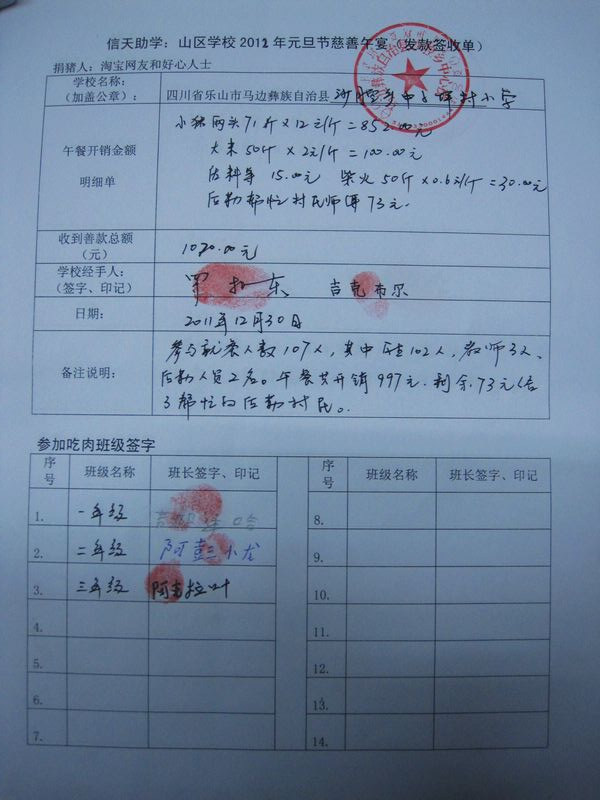 信天助学：山区学校2012年元旦节慈善午宴（发款签收单）
捐猪人：淘宝网友和好心人士
学校名称：
（加盖公章）：
四川省乐山市马边彝族自治县 沙腔乡中子坪村小学
午餐开销金额
明细单
小猪两头71斤×12元/斤=852.00元
大米50斤×2元/斤=100.00元
佐料等 15.00元 柴火50斤×0.6元/斤=30.00元
后勤帮忙村民 73元.
收到善款总额
（元）
1070.00元
学校经手人：
（签字、印记）
吉克布尔
日期：
2011年12月30日
备注说明：
参与就餐人数107人，其中 102人，教师3人、
后勤人员2名。午餐共开销997元.剩余73元
了帮忙的后勤村民。
参加吃肉班级签字
序号 班级名称 班长签字、印记 序号 班级名称 班长签字、印记
1. 一年级 8.
2. 二年级 小龙 9.
3. 三年级 10.
4. 11.
5. 12.
6. 13.
7. 14.